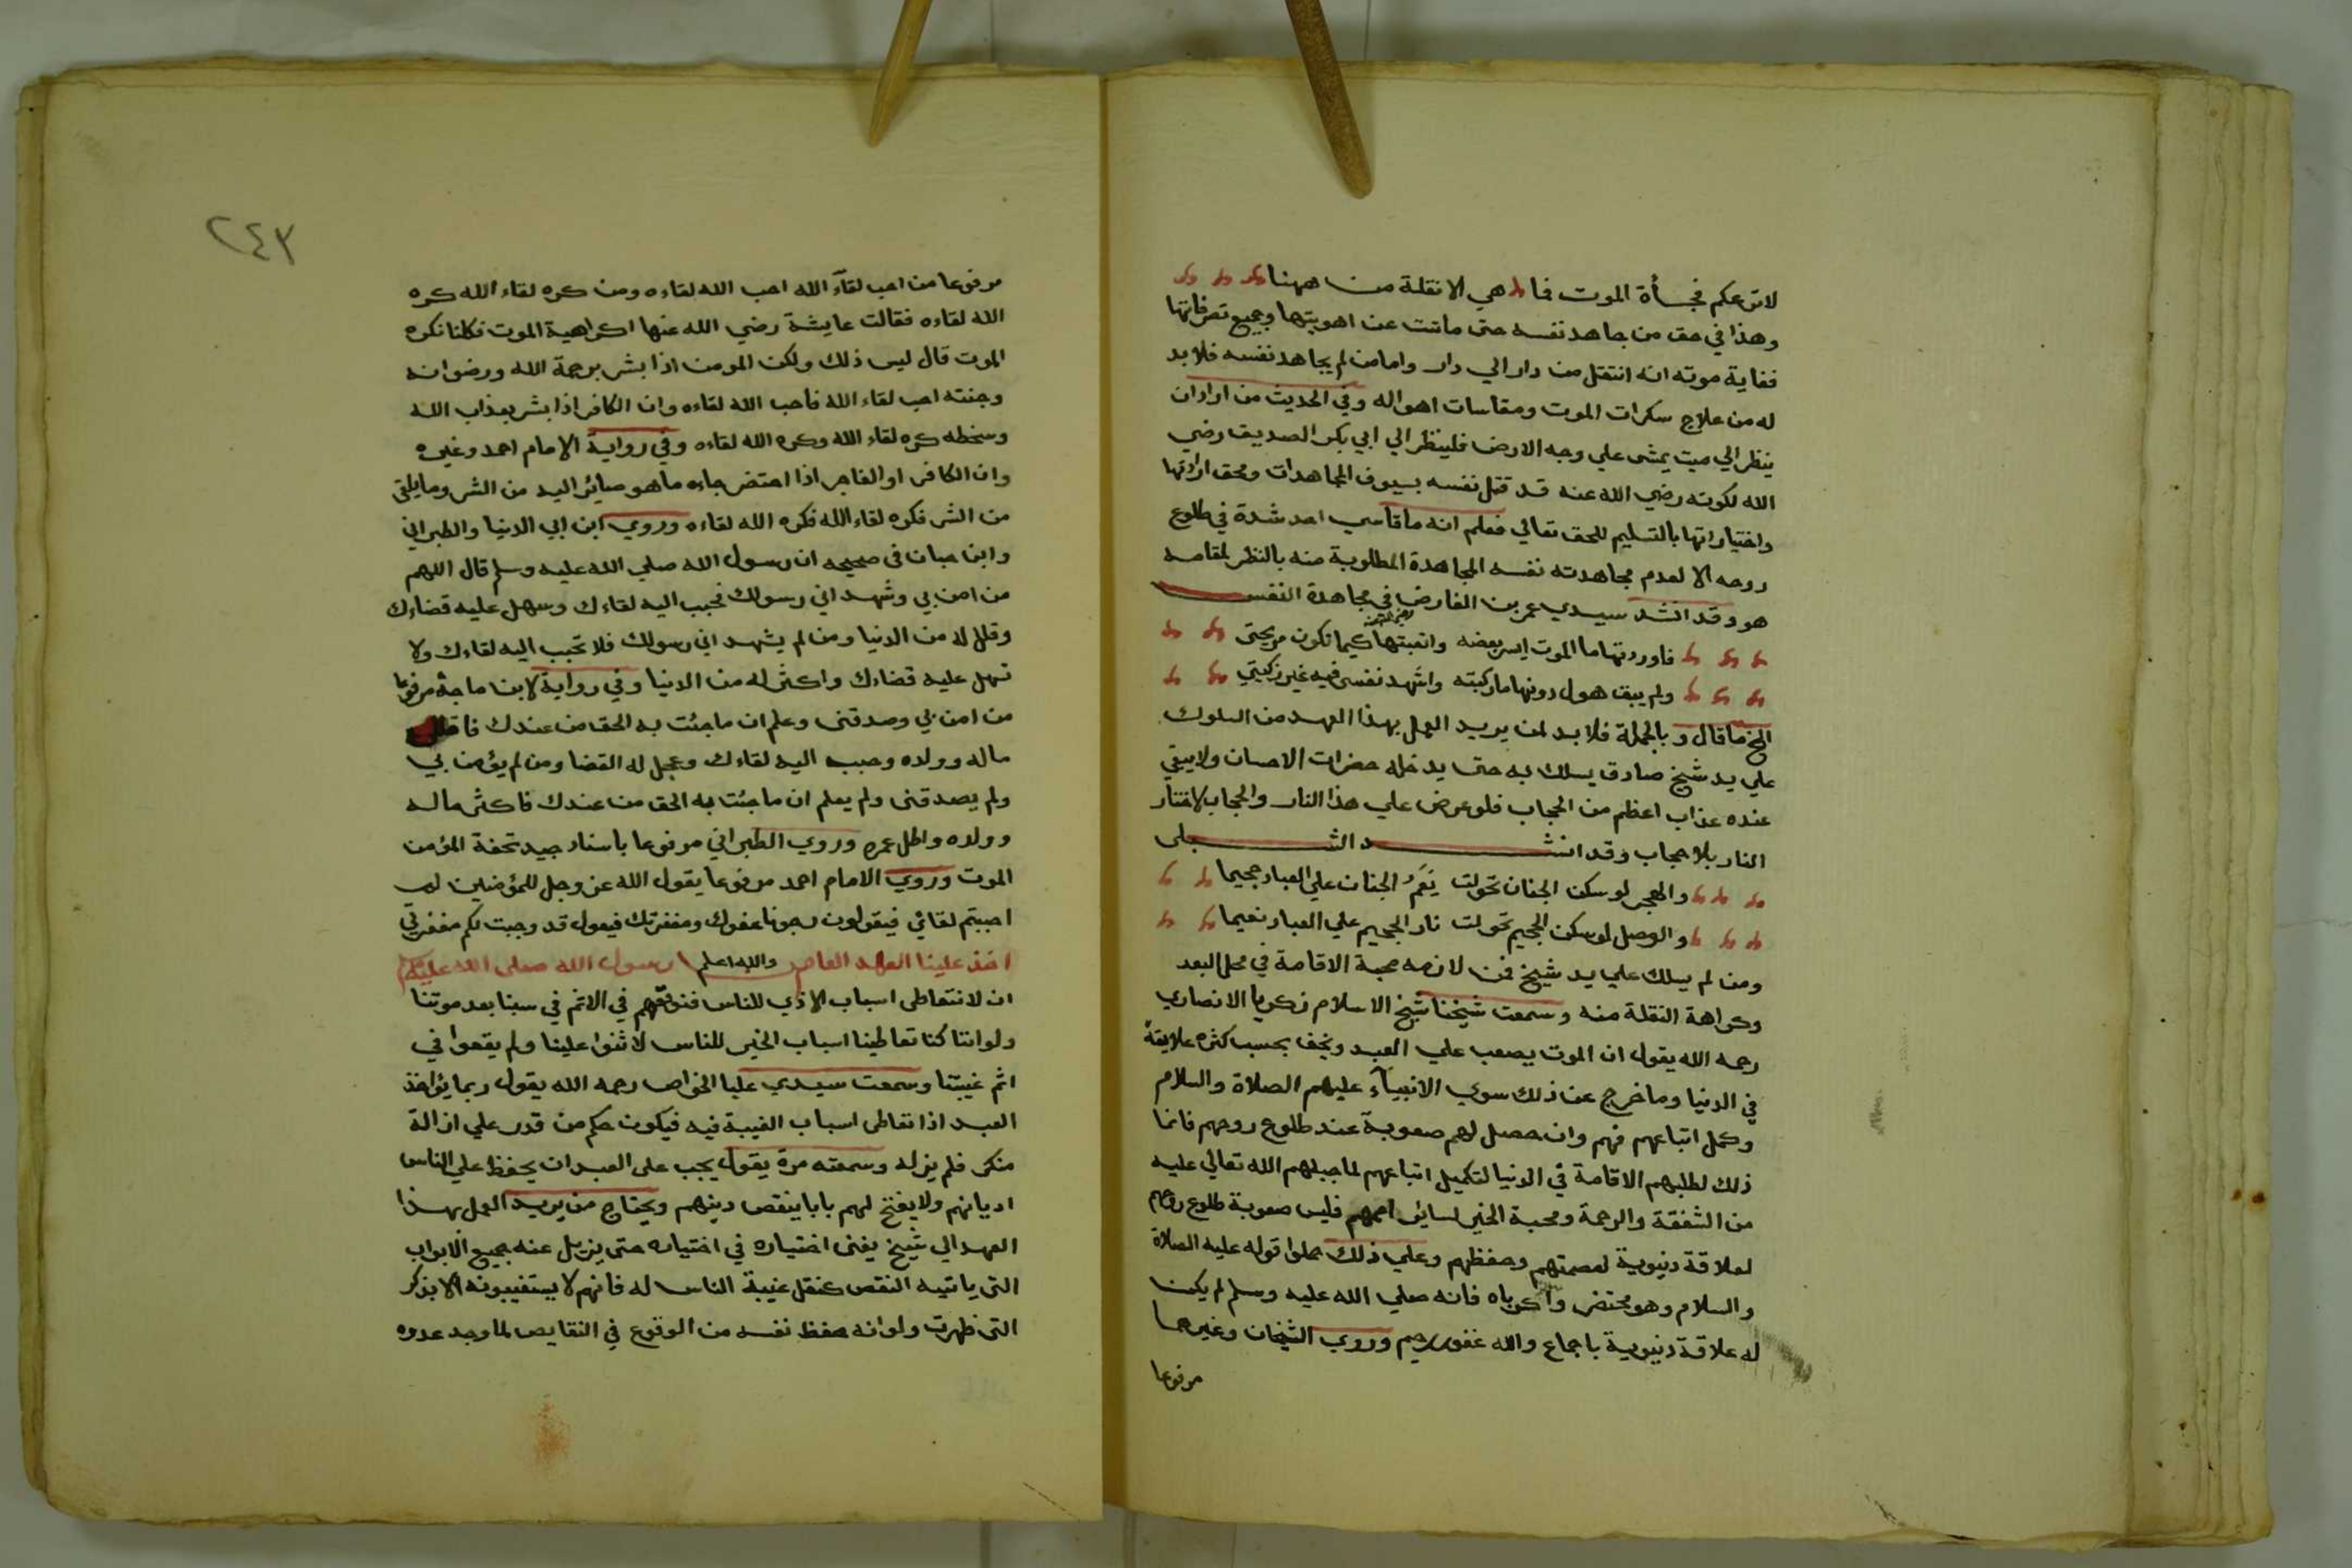 لاترعكم فجأة الموت فما هي الا نقلة من ههنا
وهذا في حق من جاهد نفسه حتى ماتت عن اهويتها وجميع تصرفاتها
فغاية موته انه انتقل من دار الي دار واما من لم يجاهد نفسه فلابد
له من علاج سكرات الموت ومقاسات اهواله وفي الحديث من اراد ان
ينظر الي ميت يمشى علي وجه الارض فلينظر الي ابي بكر الصديق رضي
الله لكونه رضي الله عنه قد قتل نفسه بسيوف المجاهدات ومحق اراداتها
واختياراتها بالتسليم للحق تعالي فعلم انه ما قاسي احد شدة في طلوع
روحه الا لعدم مجاهدته نفسه المجاهدة المطلوبة منه بالنظر لمقامه
هو وقد انشد سيدي عمر بن الفارض في مجاهدة النفس
فاوردتها ما الموت ايسر بعضه واتعبتها كيما تكون مريحتى
ولم يبق هول دونها ما ركبته واشهد نفسى فيه غير زكيتي
الخ ما قال وبالجملة فلا بد لمن يريد العمل بهذا العهد من السلوك
علي يد شيخ صادق يسلك به حتى يدخله حضرات الاحسان ولا يبقي
عنده عذاب اعظم من الحجاب فلو عرض علي هذا النار والحجاب لاختار
النار بلا حجاب وقد انشد الشبلى
والهجر لو سكن الجنان تحولت نعم الجنان علي العباد جحيما
والوصل لو سكن الجحيم تحولت نار الجحيم علي العباد نعيما
ومن لم يسلك علي يد شيخ فمن لازمه محبة الاقامة في محل البعد
وكراهة النقلة منه وسمعت شيخنا شيخ الاسلام زكريا الانصاري
رحمه الله يقول ان الموت يصعب علي العبد ويخف بحسب كثره علايقه
في الدنيا وما خرج عن ذلك سوي الانبيآء عليهم الصلاة والسلام
وكمل اتباعهم فهم وان حصل لهم صعوبة عند طلوع روحهم فانما
ذلك لطلبهم الاقامة في الدنيا لتكميل اتباعهم لما جبلهم الله تعالي عليه
من الشفقة والرحمة ومحبة الخير لساير اممهم فليس صعوبة طلوع روحهم
لعلاقة دنيوية لعصمتهم وحفظهم وعلي ذلك حملوا قوله عليه الصلاة
والسلام وهو محتضر واكرباه فانه صلي الله عليه وسلم لم يكن
له علاقة دنيوية باجماع والله غفور رحيم وروي الشيخان وغيرهما
مرفوعا
٢٤٣
مرفوعا من احب لقآء الله احب الله لقاءه ومن كره لقاء الله كره
الله لقاءه فقالت عايشة رضي الله عنها اكراهية الموت فكلنا نكره
الموت قال ليس ذلك ولكن المومن اذا بشر برحمة الله ورضوانه
وجنته احب لقاء الله فاحب الله لقاءه وان الكافر اذا بشر بعذاب الله
وسخطه كره لقاء الله وكره الله لقاءه وفي رواية الامام احمد وغيره
وان الكافر او الفاجر اذا احتضر جاءه ما هو صائر اليه من الشر وما يلقى
من الشر فكره لقاء الله فكره الله لقاءه وروي ابن ابي الدنيا والطبراني
وابن حبان في صحيحه ان رسول الله صلي الله عليه وسلم قال اللهم
من امن بي وشهد اني رسولك فحبب اليه لقاءك وسهل عليه قضاءك
وقلل له من الدنيا ومن لم يشهد اني رسولك فلا تحبب اليه لقاءك ولا
تسهل عليه قضاءك واكثر له من الدنيا وفي رواية لابن ماجة مرفوعا
من امن بي وصدقنى وعلم ان ما جئت به الحق من عندك فاقلل
ماله وولده وحبب اليه لقاءك وعجل له القضا ومن لم يؤمن بي
ولم يصدقنى ولم يعلم ان ما جئت به الحق من عندك فاكثر ماله
وولده واطل عمره وروي الطبراني مرفوعا باسناد جيد تحفة المؤمن
الموت وروي الامام احمد مرفوعا يقول الله عز وجل للمؤمنين لم
احببتم لقائي فيقولون رجونا عفوك ومغفرتك فيقول قد وجبت لكم مغفرتي
والله اعلم
اخذ علينا العهد العام رسول الله صلى الله عليه وسلم
ان لا نتعاطى اسباب الاذي للناس فنوقعهم في الاثم في سبنا بعد موتنا
ولو اننا كنا تعاطينا اسباب الخير للناس لاثنوا علينا ولم يقعوا في
اثم غيبتنا وسمعت سيدي عليا الخواص رحمه الله يقول ربما يؤاخذ
العبد اذا تعاطى اسباب الغيبة فيه فيكون حكم من قدر علي ازالة
منكر فلم يزله وسمعته مرة يقول يجب على العبد ان يحفظ علي الناس
اديانهم ولا يفتح لهم بابا ينقص دينهم ويحتاج من يريد العمل بهذا
العهد الي شيخ يفنى اختياره في اختياره حتى يزيل عنه جميع الابواب
التى ياتيه النقص كنقل غيبة الناس له فانهم لا يستغيبونه الا بذكر
التى ظهرت ولو انه حفظ نفسه من الوقوع في النقايص لما وجد عدوه